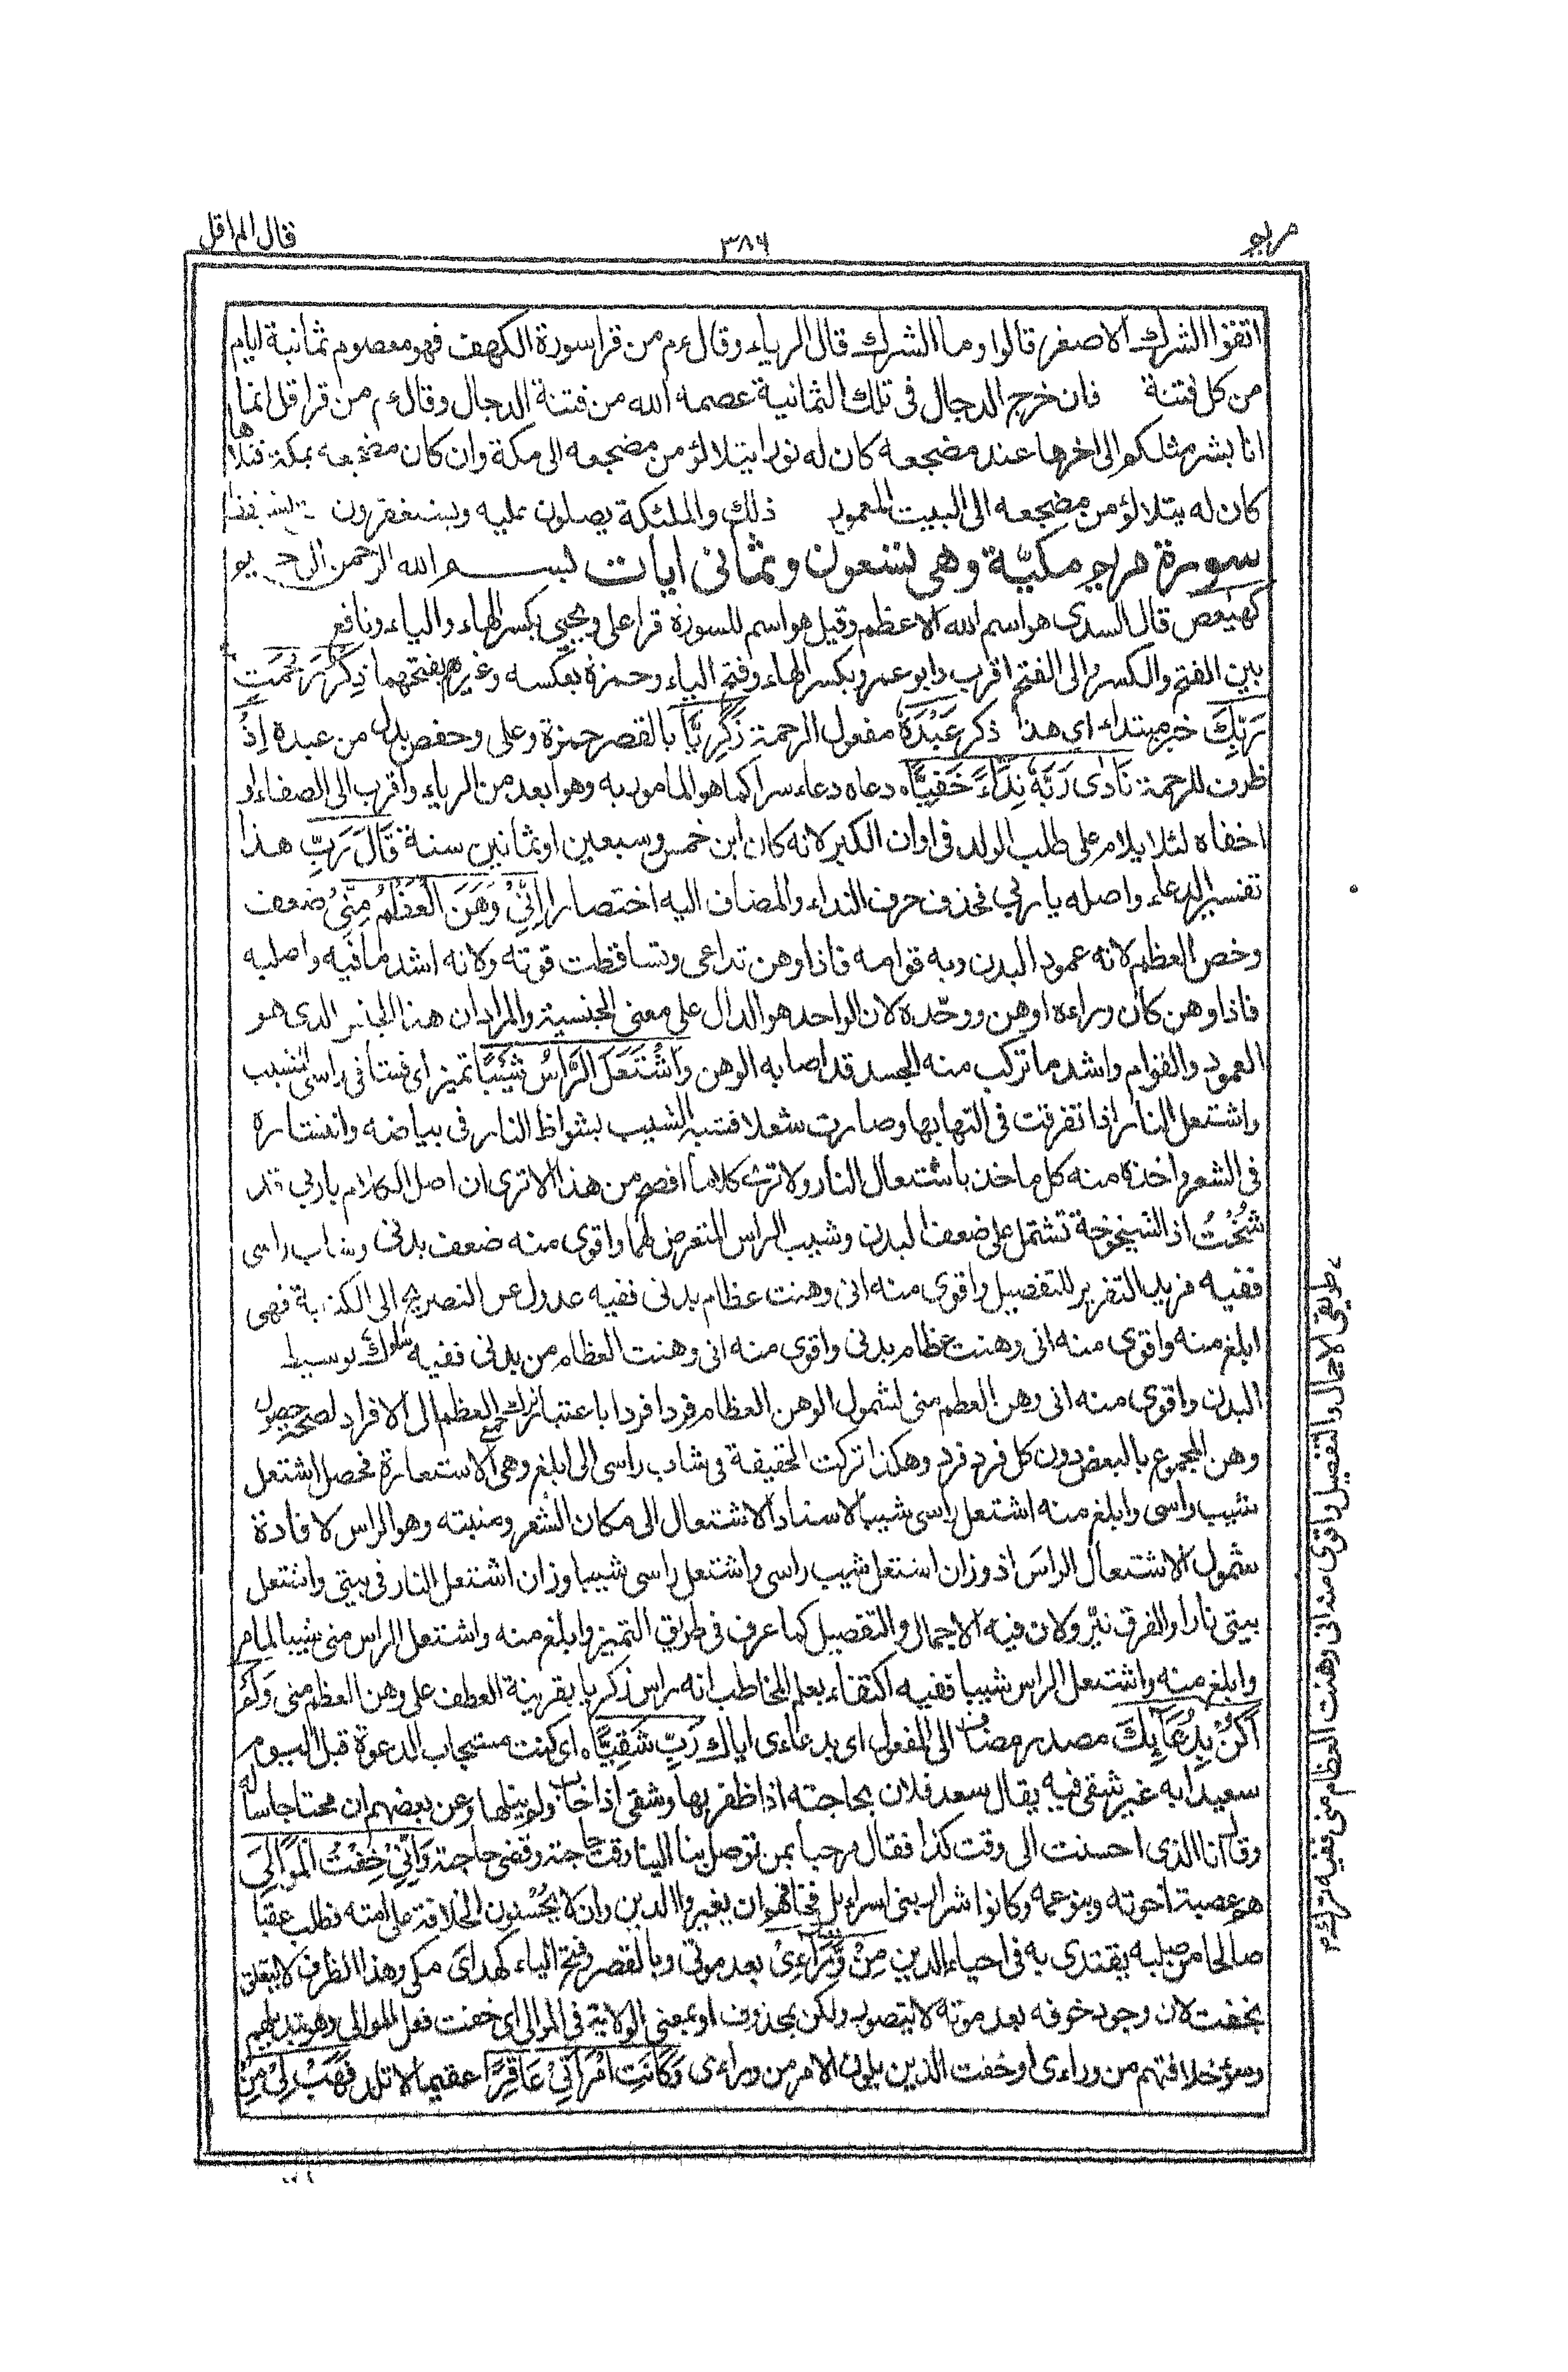 مريم
٣٨٦
قال الم اقل
اتقوا الشرك الاصغر قالوا وما الشرك قال الرياء وقال ءم من قرا سورة الكهف فهو معصوم ثمانية ايام
من كل فتنة فان خرج الدجال فى تلك الثمانية عصمه الله من فتنة الدجال وقال ءم من قرا قل انما
انا بشر مثلكم الى اخرها عند مضجعه كان له نورا يتلالؤ من مضجعه الى مكة وان كان مضجعه بمكة فتلاها
كان له يتلالؤ من مضجعه الى البيت المعمور ذلك والملئكة يصلون عليه ويستغفرون
سورة مريم مكيّة وهى تسعون وثمانى ايات بسم الله الرحمن الرحيم
كهيعص قال السدى هو اسم الله الاعظم وقيل هو اسم للسورة قرا على ويحيى بكسر الهاء والياء ونافع
بين الفتح والكسر والى الفتح اقرب وابو عمرو بكسر الهاء وفتح الياء وحمزة بعكسه وغيرهم بفتحهما ذِكْرُ رَحْمَتِ
رَبِّكَ خبر مبتداء اى هذا ذكر عَبْدَهٗ مفعول الرحمة زَكَرِيَّا بالقصر حمزة وعلى وحفص بدل من عبده اِذْ
ظرف للرحمة نَادٰى رَبَّهٗ نِدَآءً خَفِيًّا ه دعاه دعاء سرا كما هو المامور به وهو ابعد من الرياء واقرب الى الصفاء او
اخفاه لئلا يلام على طلب الولد فى اوان الكبر لانه كان ابن خمس وسبعين او ثمانين سنة قَالَ رَبِّ هذا
تفسير الدعاء واصله يا ربى فحذف حرف النداء والمضاف اليه اختصارا اِنِّىْ وَهَنَ الْعَظْمُ مِنِّىْ ضعف
وخص العظم لانه عمود البدن وبه قوامه فاذا وهن تداعى وتساقطت قوته ولانه اشد ما فيه واصلبه
فاذا وهن كان وراءه اوهن ووحّده لان الواحد هو الدال على معنى الجنسية والمراد ان هذا الجنس الذى هو
العمود والقوام واشد ما تركب منه الجسد قد اصابه الوهن وَاشْتَعَلَ الرَّاْسُ شَيْبًا تميز اى فشا فى راسى الشيب
واشتعل النار اذا تفرقت فى التهابها وصارت شعلا فشبه الشيب بشواظ النار فى بياضه وانتشاره
فى الشعر واخذه منه كل ماخذ باشتعال النار ولا ترى كلاما افصح من هذا الا ترى ان اصل الكلام يا ربى قد
شِخْتُ اذ الشيخوخة تشتمل على ضعف البدن وشيب الراس المتعرض لهما واقوى منه ضعف بدنى وشاب راسى
ففيه مزيد التقرير للتفصيل واقوى منه انى وهنت عظام بدنى ففيه عدول عن التصريح الى الكناية فهى
ابلغ منه واقوى منه انى وهنت عظام بدنى واقوى منه انى وهنت العظام من بدنى ففيه سلوك توسيط
البدن واقوى منه انى وهن العظم منى لشمول الوهن العظام فردا فردا باعتبار ترك جمع العظم الى الافراد لصحة حصول
وهن المجموع بالبعض دون كل فرد فرد وهكذا تركت الحقيقة فى شاب راسى الى ابلغ وهى الاستعارة فحصل اشتعل
شيب راسى وابلغ منه اشتعل راسى شيبا لاسناد الاشتعال الى مكان الشعر ومنبته وهو الراس لافادة
شمول الاشتعال الراس اذ وزان اشتعل شيب راسى واشتعل راسى شيبا وزان اشتعل النار فى بيتى واشتعل
بيتى نارا والفرق نيّر ولان فيه الاجمال والتفصيل كما عرف فى طريق التميز وابلغ منه واشتعل الراس منى شيبا لما مر
وابلغ منه واشتعل الراس شيبا ففيه اكتفاء بعلم المخاطب انه راس زكريا بقرينة العطف على وهن العظم منى وَلَمْ
اَكُنْ بِدُعَآئِكَ مصدر مضاف الى المفعول اى بدعاءى اياك رَبِّ شَقِيًّا ه اى كنت مستجاب الدعوة قبل اليوم
سعيدا به غير شقى فيه يقال سعد فلان بحاجته اذا ظفر بها وشقى اذا خاب ولم ينلها وعن بعضهم ان محتاجا ساله
وقال انا الذى احسنت الى وقت كذا فقال مرحبا بمن توصل بنا الينا وقت حاجته وقضى حاجته وَاِنِّىْ خِفْتُ الْمَوَالِىَ
هم عصبة اخوته وبنو عمه وكانوا شرار بنى اسراءيل فخافهم ان يغيروا الدين وان لا يحسنون الخلافة على امته فطلب عقبا
صالحا من صلبه يقتدى به فى احياء الدين مِنْ وَّرَآءِىْ بعد موتى وبالقصر وفتح الياء كهداى مكى وهذا الظرف لا يتعلق
بخفت لان وجود خوفه بعد موته لا يتصور ولكن بمحذوف او بمعنى الولاية فى الموالى اى خفت فعل الموالى وهو تبديلهم
وسوء خلافتهم من وراءى او خفت الذين يلون الامر من وراءى وَكَانَتِ امْرَاَتِىْ عَاقِرًا عقيما لا تلد فَهَبْ لِىْ مِنْ
طريقى الاجمال والتفصيل واقوى منه انى وهنت العظام منى ففيه ترك